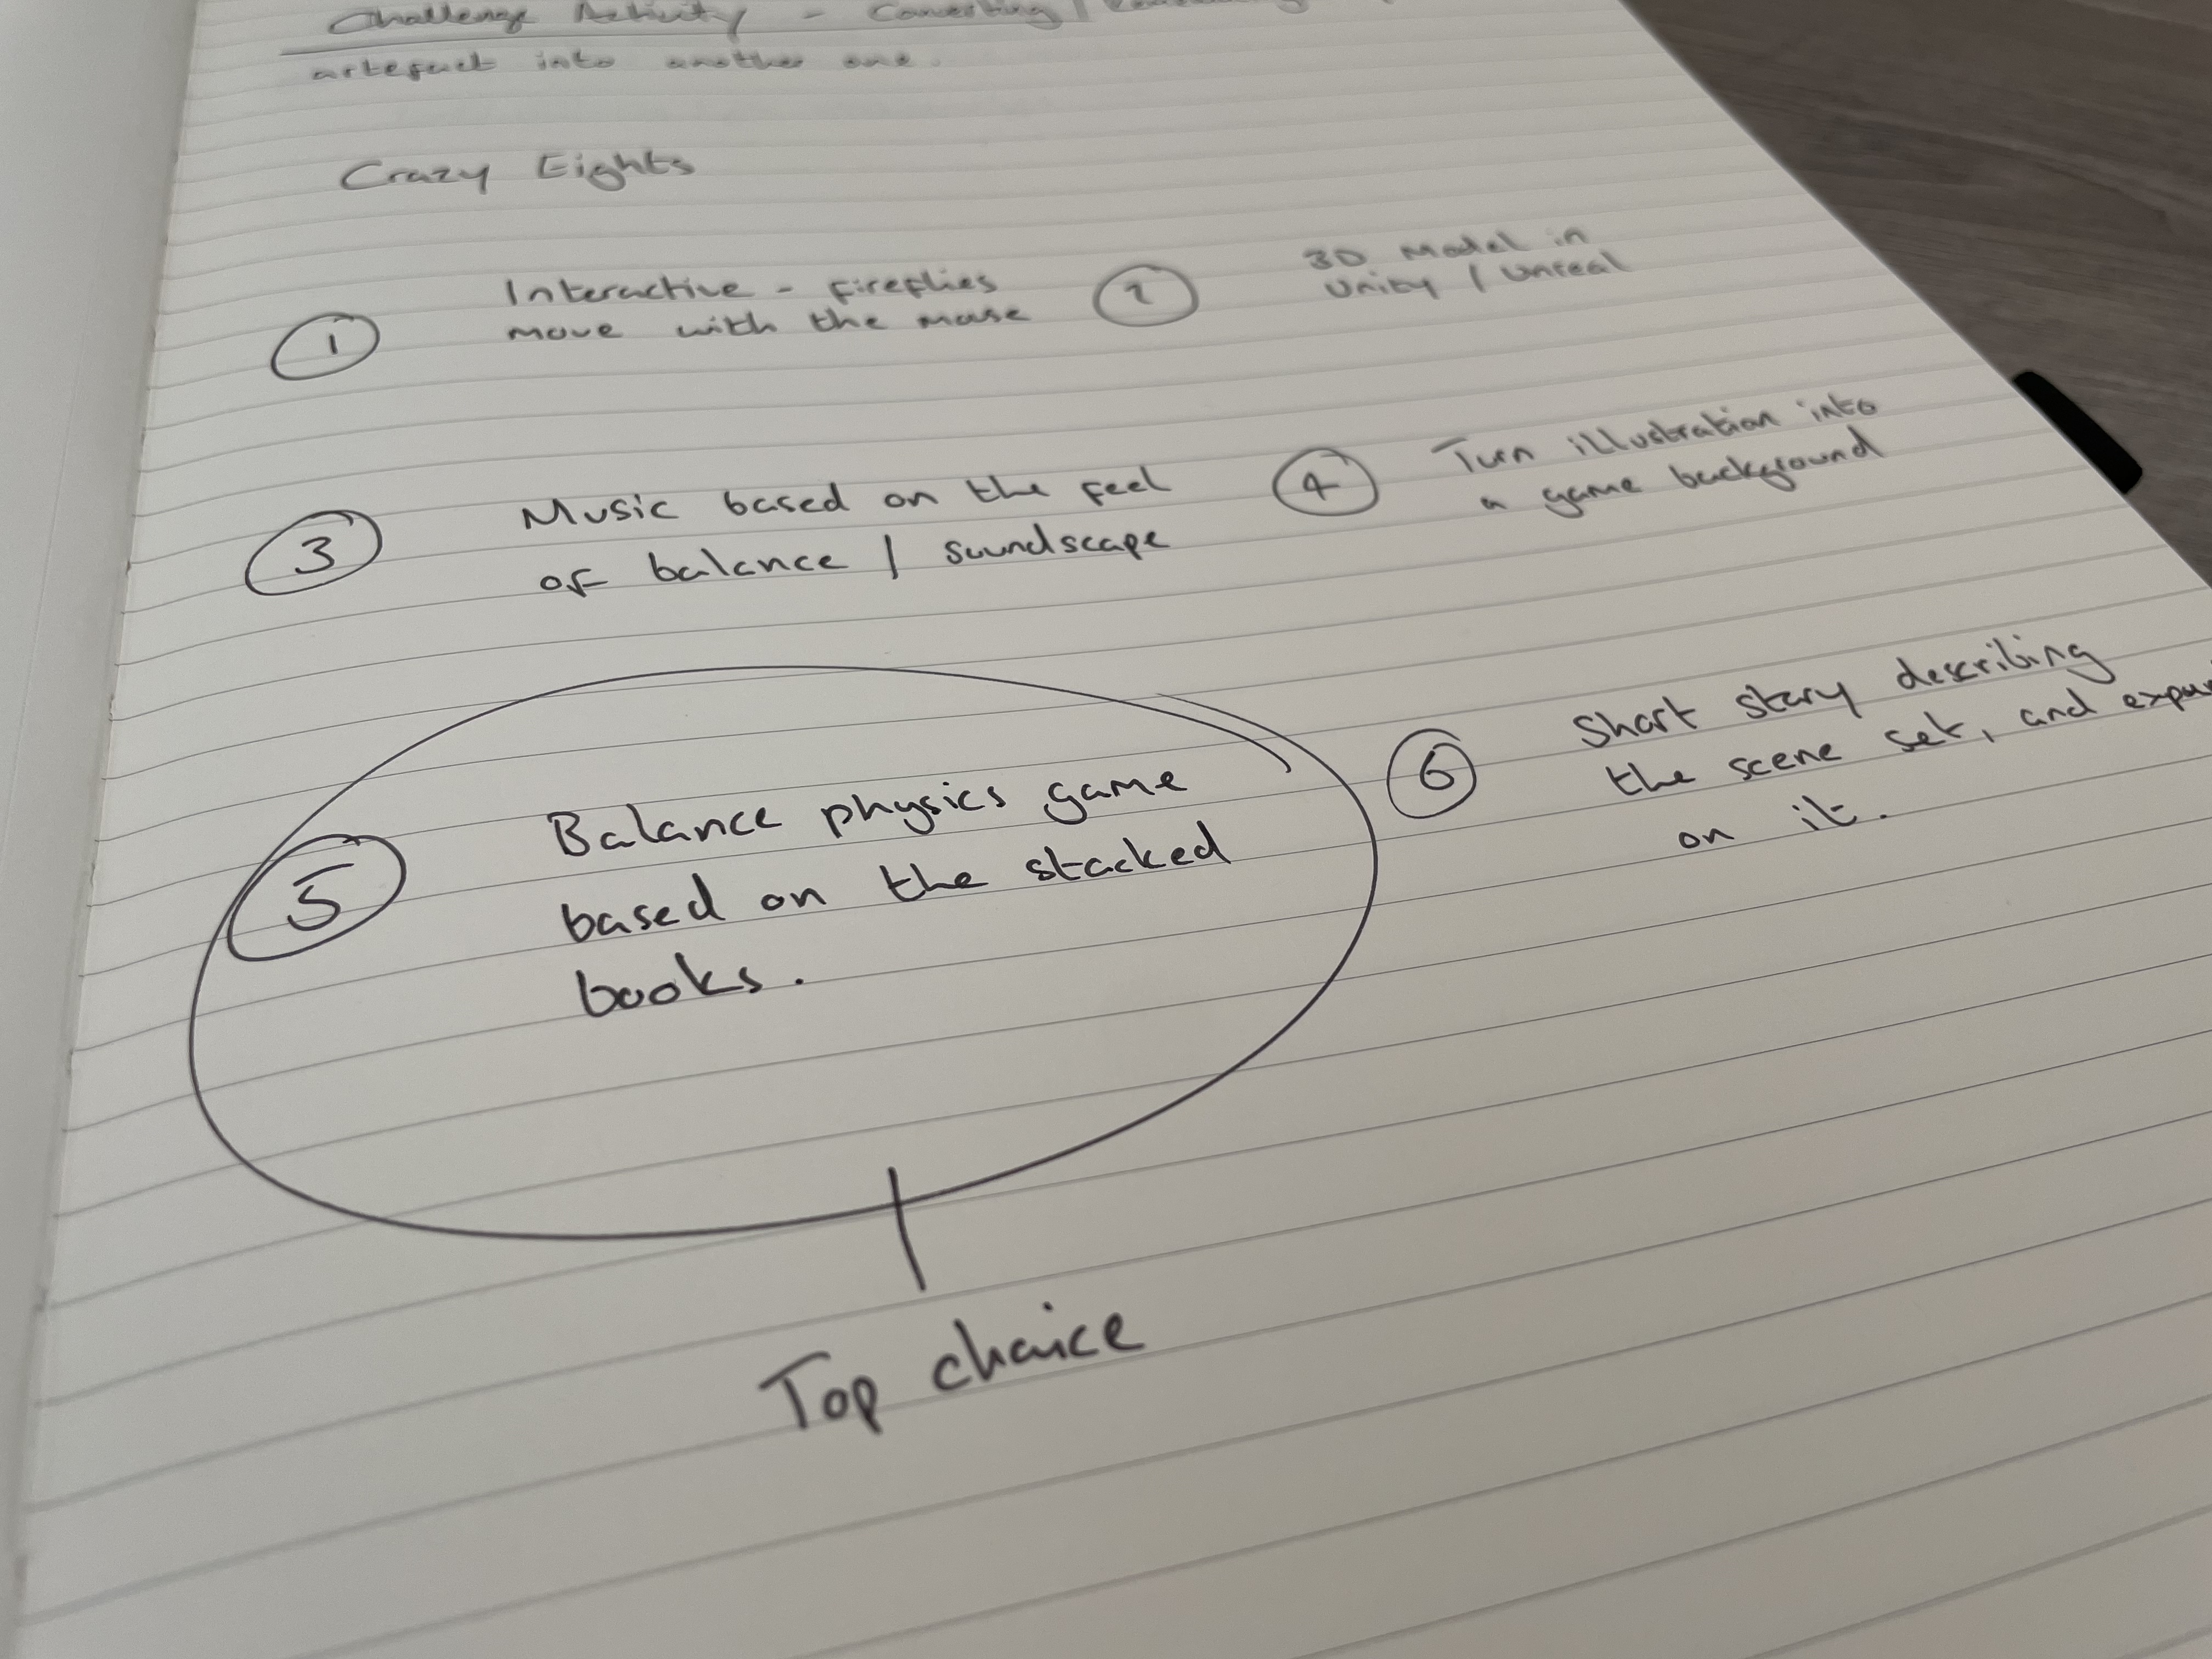 Challenge Activity - Converting /
artefact into another one.
Crazy Eights
1 Interactive - fireflies
move with the mouse
2 3D Model in
Unity / Unreal
3 Music based on the feel
of balance / soundscape
4 Turn illustration into
a game background
5 Balance physics game
based on the stacked
books.
6 Short story describing
the scene set, and
on it.
Top choice